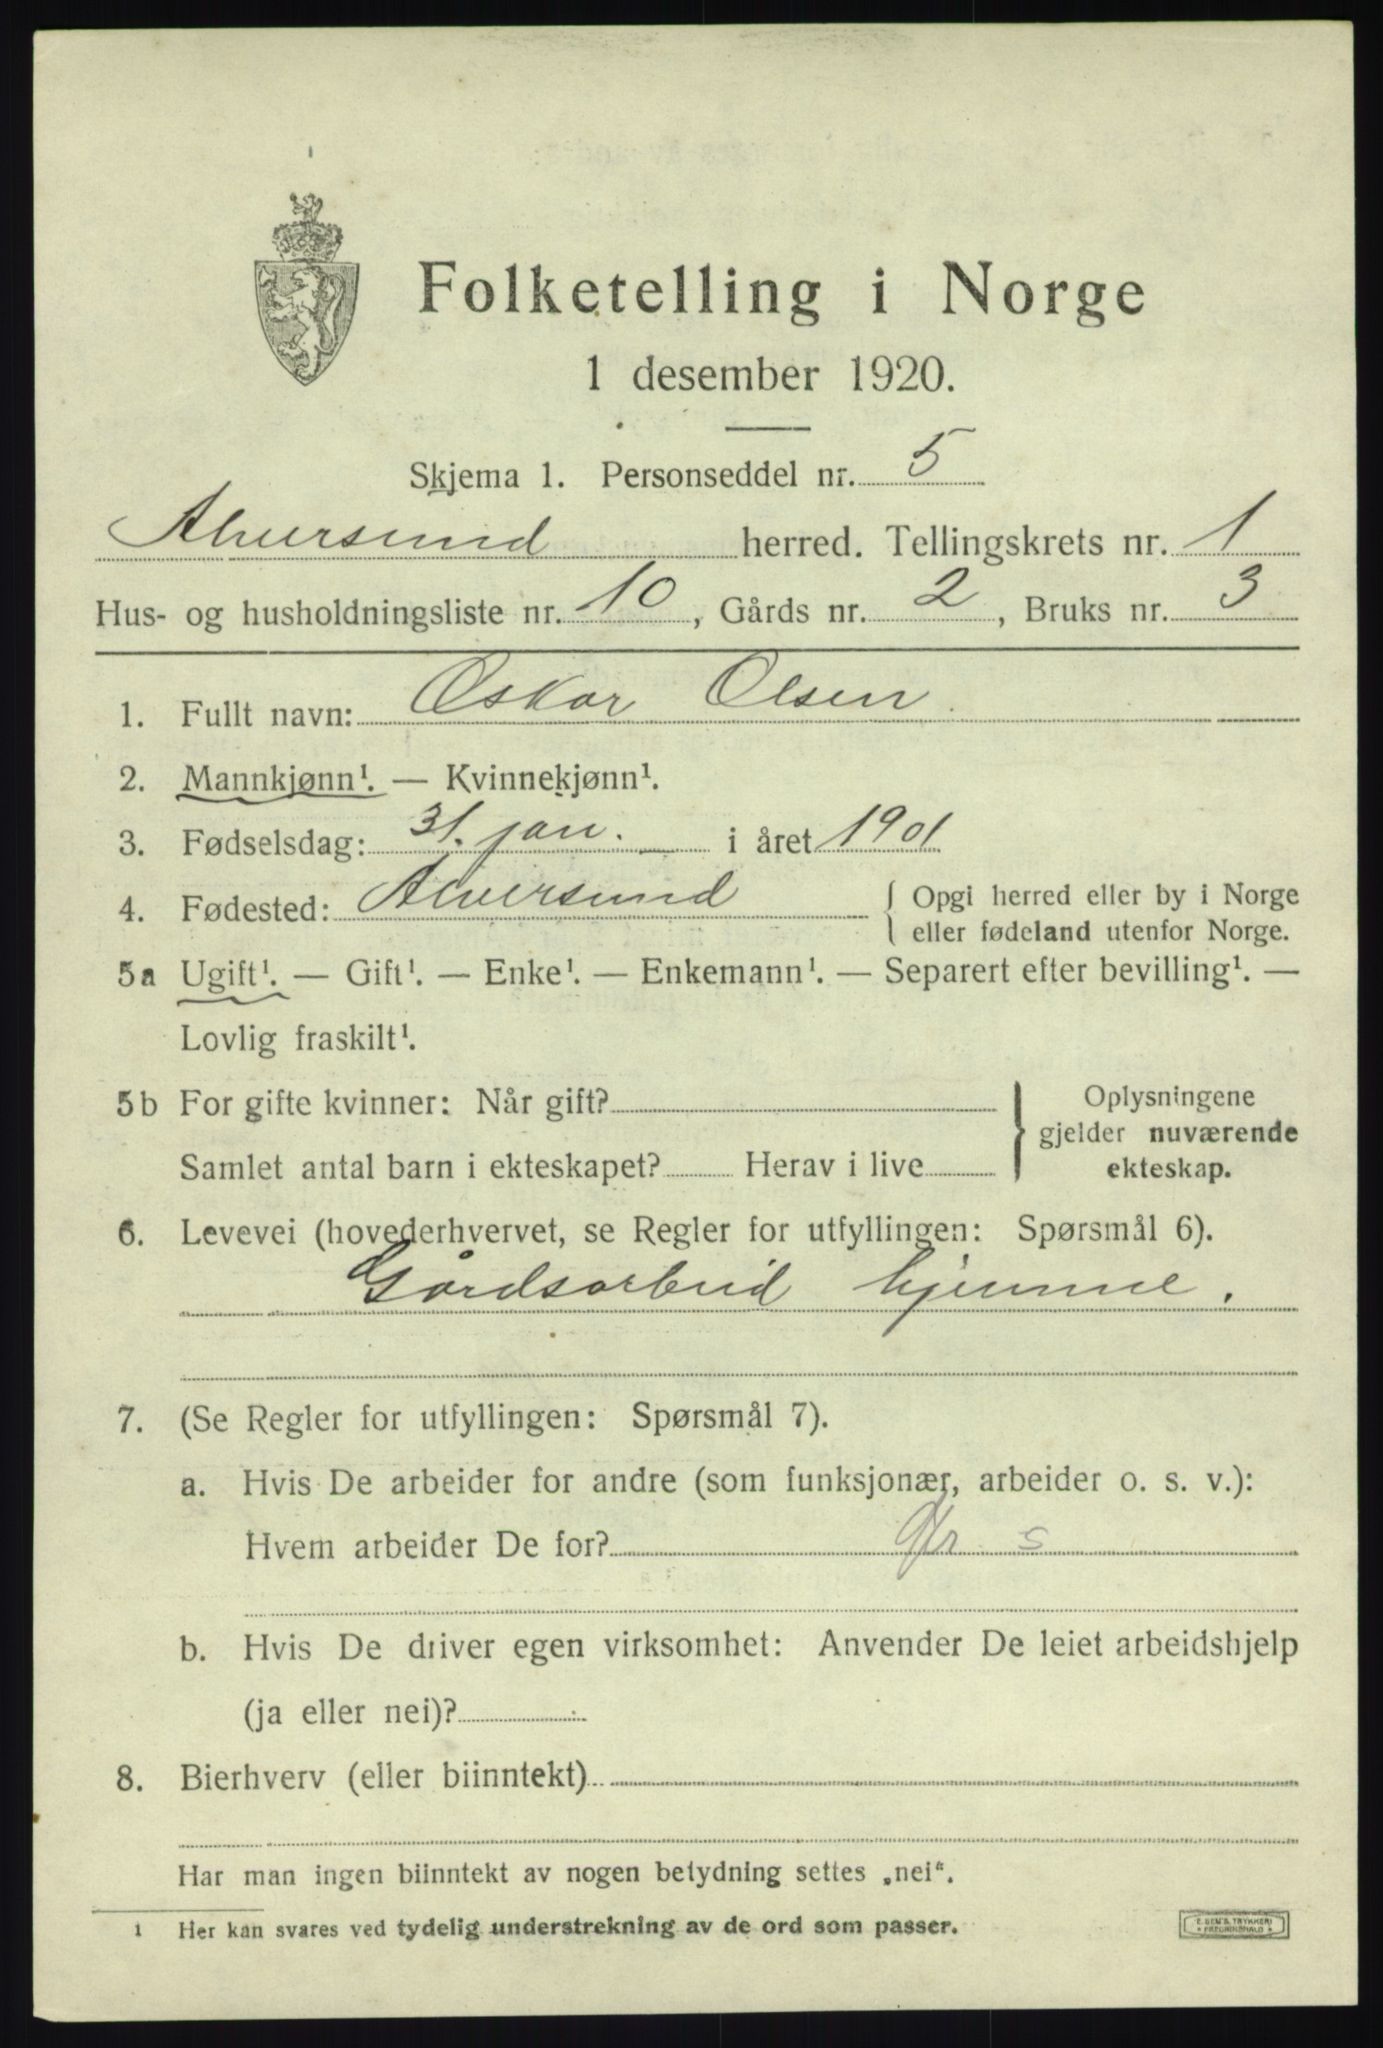 Folketelling i Norge
1 desember 1920.
Skjema 1. Personseddel nr. 5
Alversund herred. Tellingskrets nr. 1
Hus- og husholdningsliste nr. 10, Gårds nr. 2, Bruks nr. 3
1. Fullt navn: Oskar Olsen
2. Mannkjønn¹. — Kvinnekjønn¹.
3. Fødselsdag: 31. jan. i året 1901
4. Fødested: Alversund { Opgi herred eller by i Norge
eller fødeland utenfor Norge.
5a Ugift¹. — Gift¹. — Enke¹. — Enkemann¹. — Separert efter bevilling¹. —
Lovlig fraskilt¹.
5b For gifte kvinner: Når gift?
Samlet antal barn i ekteskapet? Herav i live
} Oplysningene
gjelder nuværende
ekteskap.
6. Levevei (hovederhvervet, se Regler for utfyllingen: Spørsmål 6).
Gårdsarbeid hjemme.
7. (Se Regler for utfyllingen: Spørsmål 7).
a. Hvis De arbeider for andre (som funksjonær, arbeider o. s. v.):
Hvem arbeider De for? s
b. Hvis De driver egen virksomhet: Anvender De leiet arbeidshjelp
(ja eller nei)?
8. Bierhverv (eller biinntekt)
Har man ingen biinntekt av nogen betydning settes „nei“.
1 Her kan svares ved tydelig understrekning av de ord som passer.
E. SEM'S TRYKKERI
FREDRIKSHALD